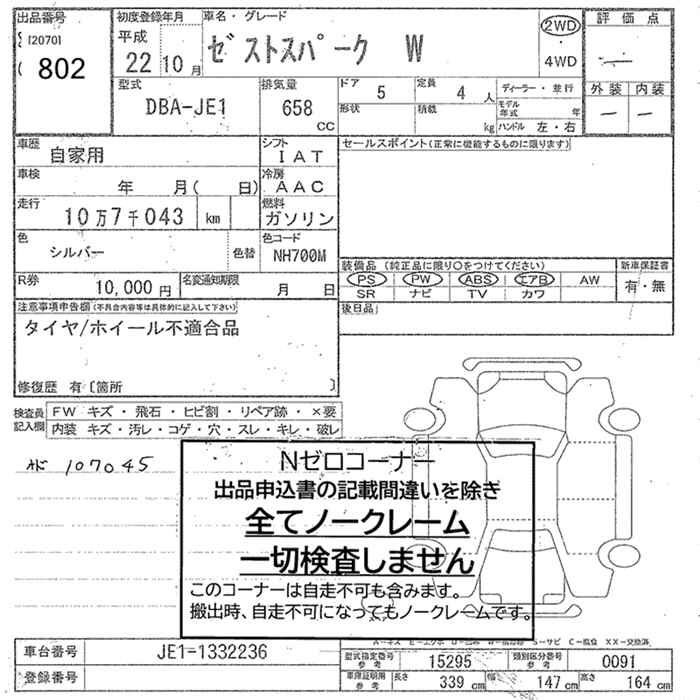 出品番号
[2070]
802
初度登録年月
平成
22 10月
車名・グレード
ゼストスパーク W
2WD
・
4WD
評価点
外装 内装
型式
DBA-JE1
排気量
658
CC
ドア 5
形状
定員 4 人
積載 kg
ディーラー・並行
モデル年式 年
ハンドル 左・右
車歴
自家用
シフト
IAT
車検
年 月( 日)
冷房
AAC
走行
10万7千043 km
燃料
ガソリン
色
シルバー
色替
色コード
NH700M
R券
10,000 円
名変通知期限
月 日
セールスポイント(正常に機能するものに限ります)
装備品 (純正品に限り○をつけてください)
新車保証書
PS PW ABS エアB AW
SR ナビ TV カワ
有・無
注意事項申告欄(不具合内容等は具体的に記入して下さい)
タイヤ/ホイール不適合品
修復歴 有〔箇所 〕
後日品
検査員記入欄
FW キズ・飛石・ヒビ割・リペア跡・×要
内装 キズ・汚レ・コゲ・穴・スレ・キレ・破レ
107045
Nゼロコーナー
出品申込書の記載間違いを除き
全てノークレーム
一切検査しません
このコーナーは自走不可も含みます。
搬出時、自走不可になってもノークレームです。
車台番号
JE1-1332236
登録番号
型式指定番号
参考
15295
類別区分番号
参考
0091
車庫証明用
参考
長さ 339 cm
幅 147 cm
高さ 164 cm